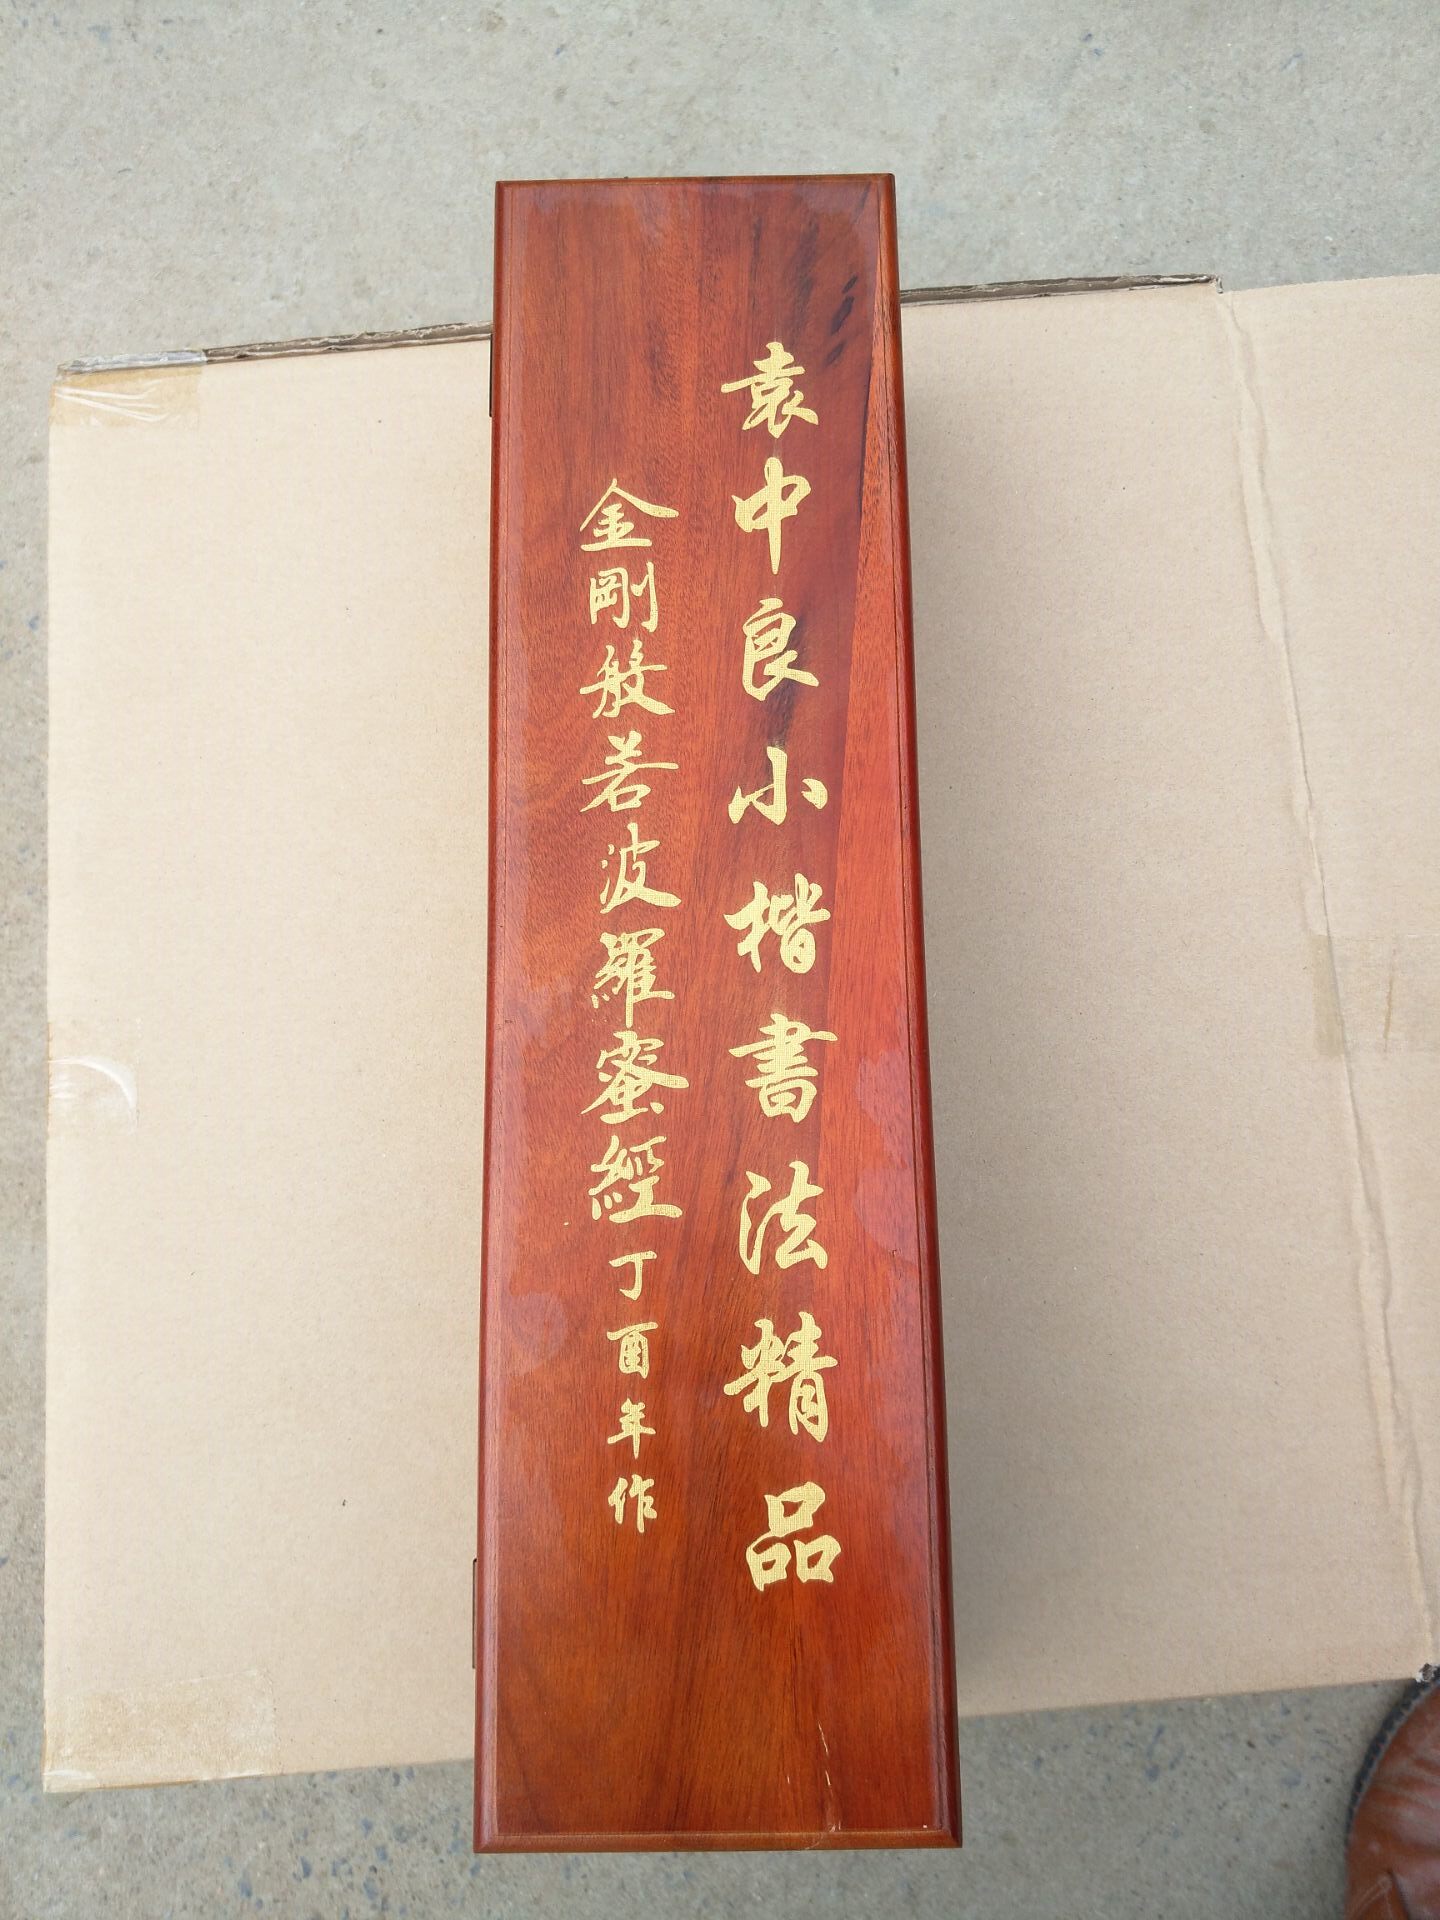 袁中良小楷書法精品
金剛般若波羅蜜經丁酉年作